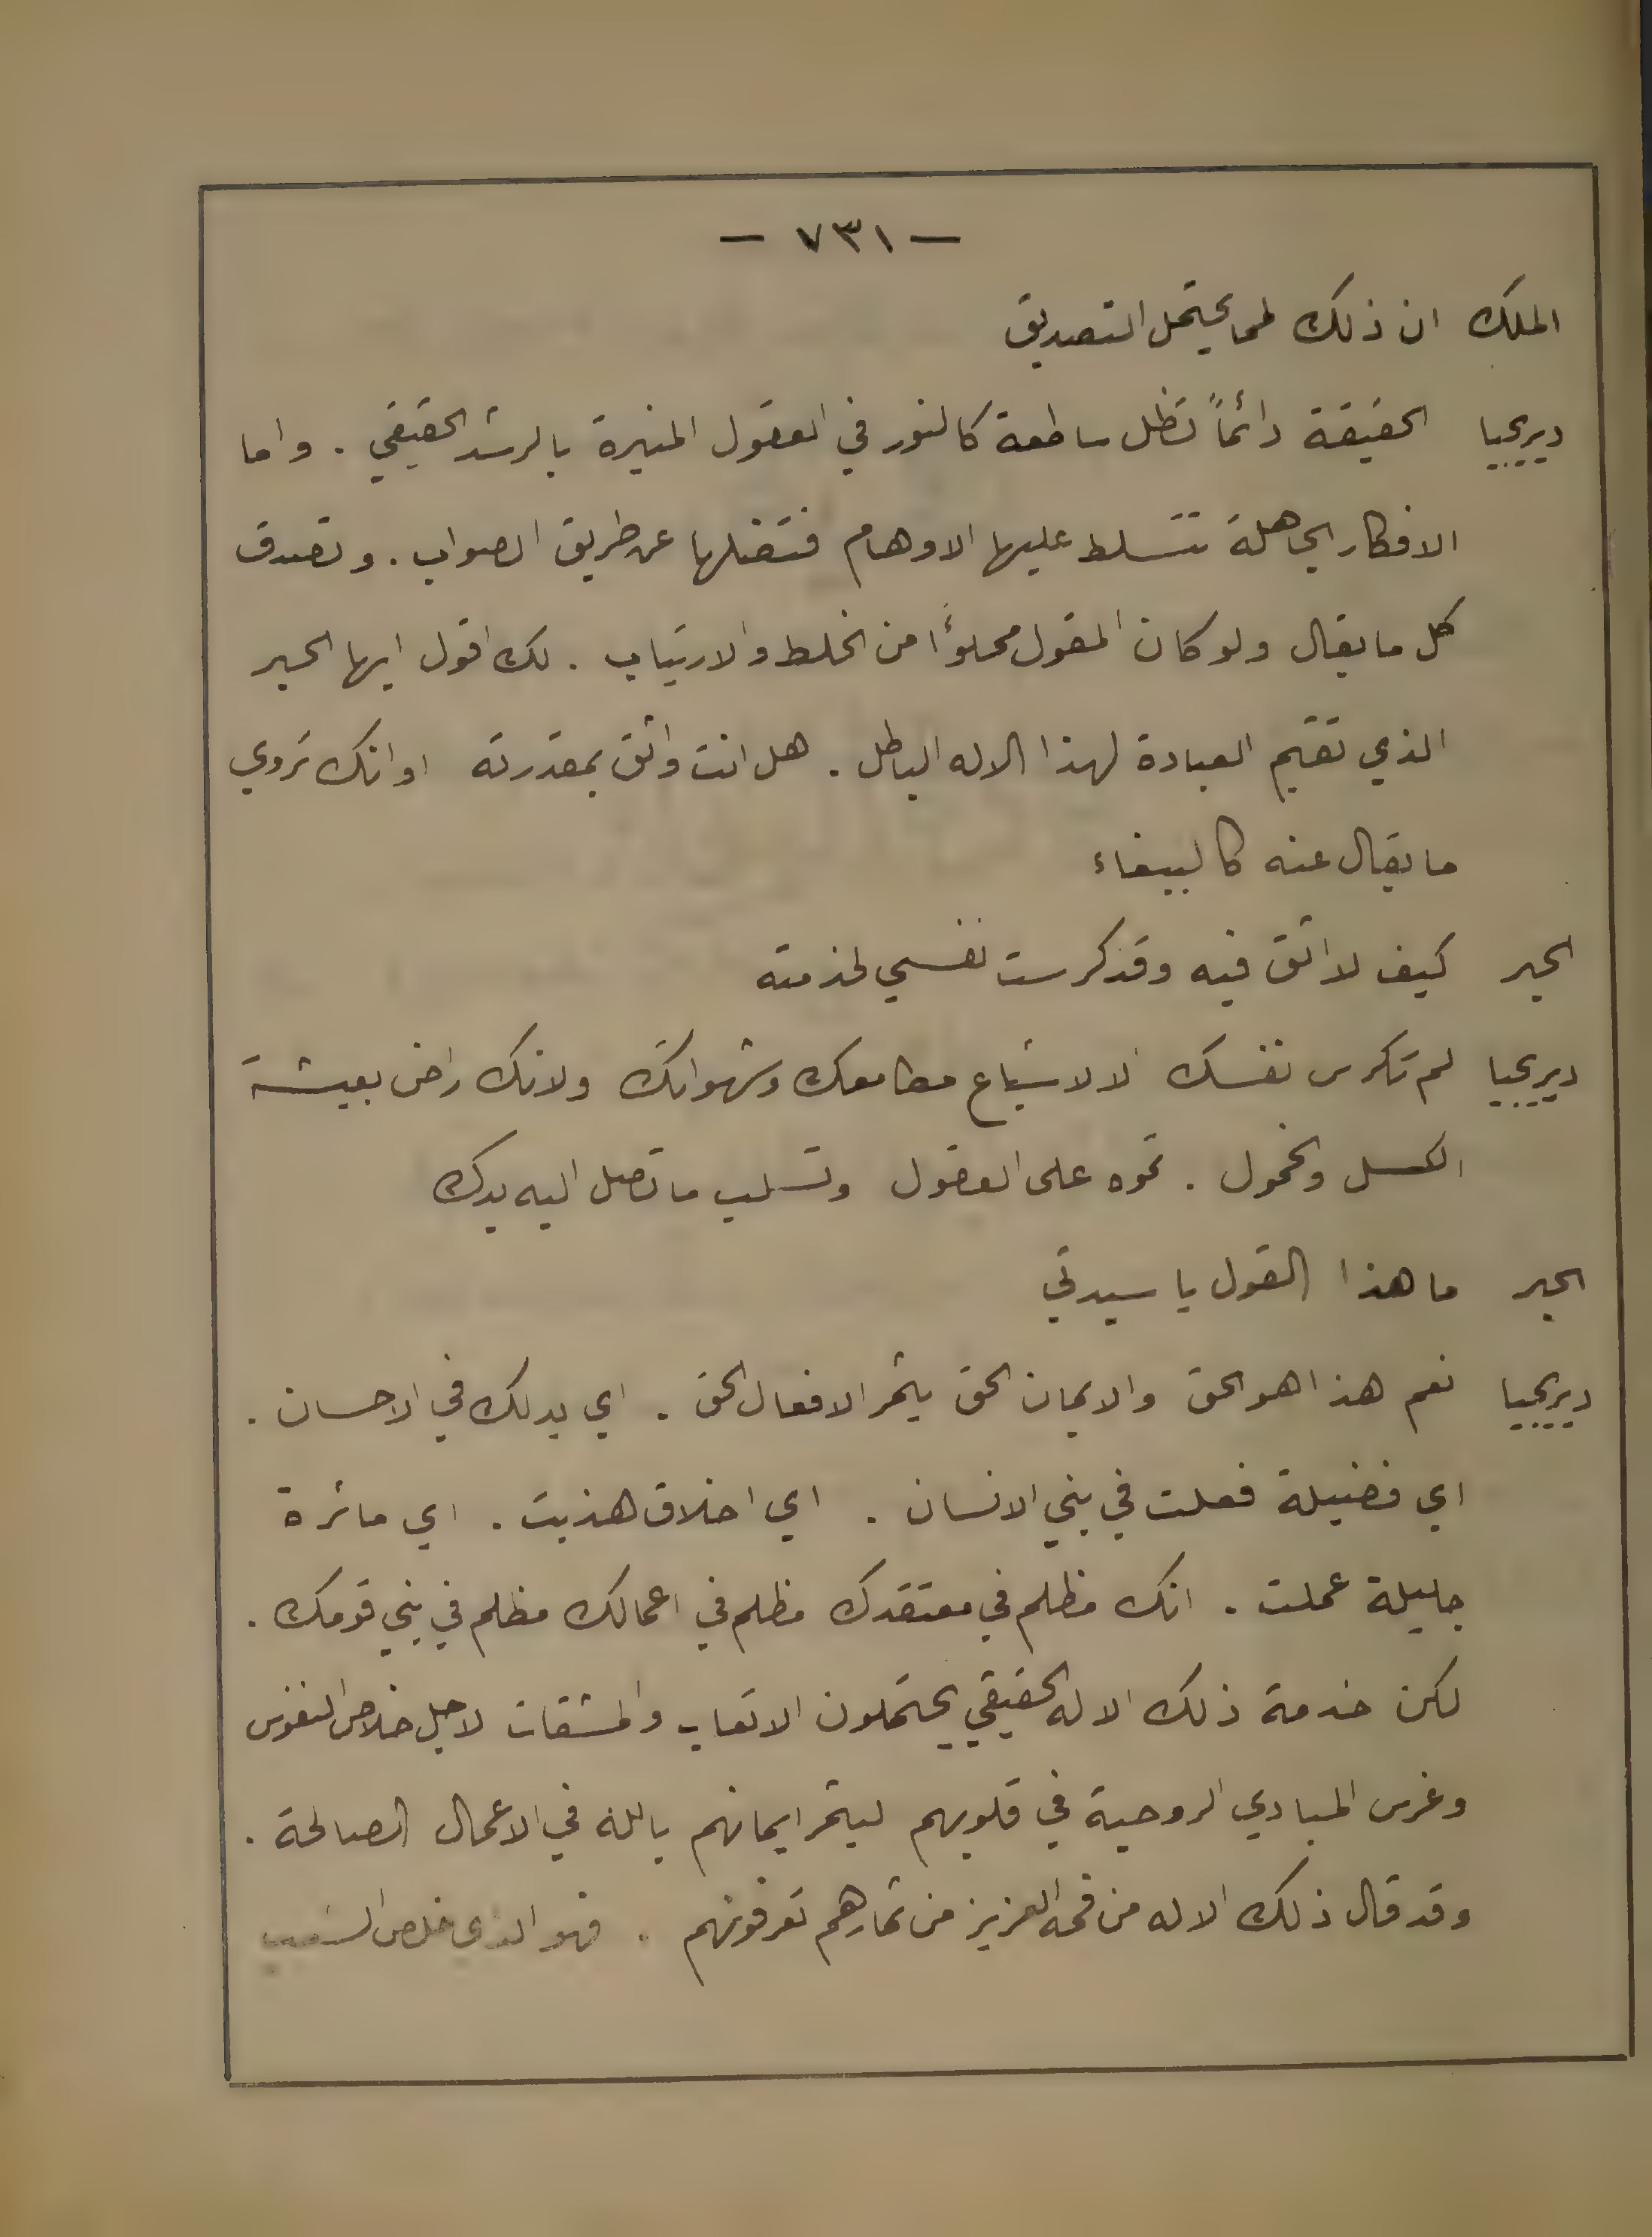 - ٧٣١ -
الملك ان ذلك لمما يحتمل التصديق
ديريحيا الحقيقة دائماً تظل ساطعة كالنور في العقول المنيرة بالرشد الحقيقي . واما
الافكار الجاهلة تتسلط عليها الاوهام فتضلها عن طريق الصواب . وتصدق
كل ما يقال ولو كان المقول مملوءًا من الخلط والارتياب . لك اقول ايها الحبر
الذي تقيم العبادة لهذا الاله الباطل . هل انت واثق بمقدرته او انك تروي
ما يقال عنه كالببغاء
الحبر كيف لا اثق فيه وقد كرست نفسي لخدمته
ديريحيا لم تكرس نفسك الا لاشباع مطامعك وشهواتك ولانك راض بعيشة
الكسل والخمول . تموه على العقول وتسلب ما تصل اليه يدك
الحبر ما هذا القول يا سيدتي
ديريحيا نعم هذا هو الحق والايمان الحق يثمر الافعال الحق . اي يد لك في الاحسان .
اي فضيلة فعلت في بني الانسان . اي اخلاق هذبت . اي ماثرة
جليلة عملت . انك مظلم في معتقدك مظلم في اعمالك مظلم في بني قومك .
لكن خدمة ذلك الاله الحقيقي يحتملون الاتعاب والمشقات لاجل خلاص النفوس
وغرس المبادي الروحية في قلوبهم ليثمر ايمانهم بالله في الاعمال الصالحة .
وقد قال ذلك الاله من فمه العزيز من ثمارهم تعرفونهم . فهو الذي خلص الشعب